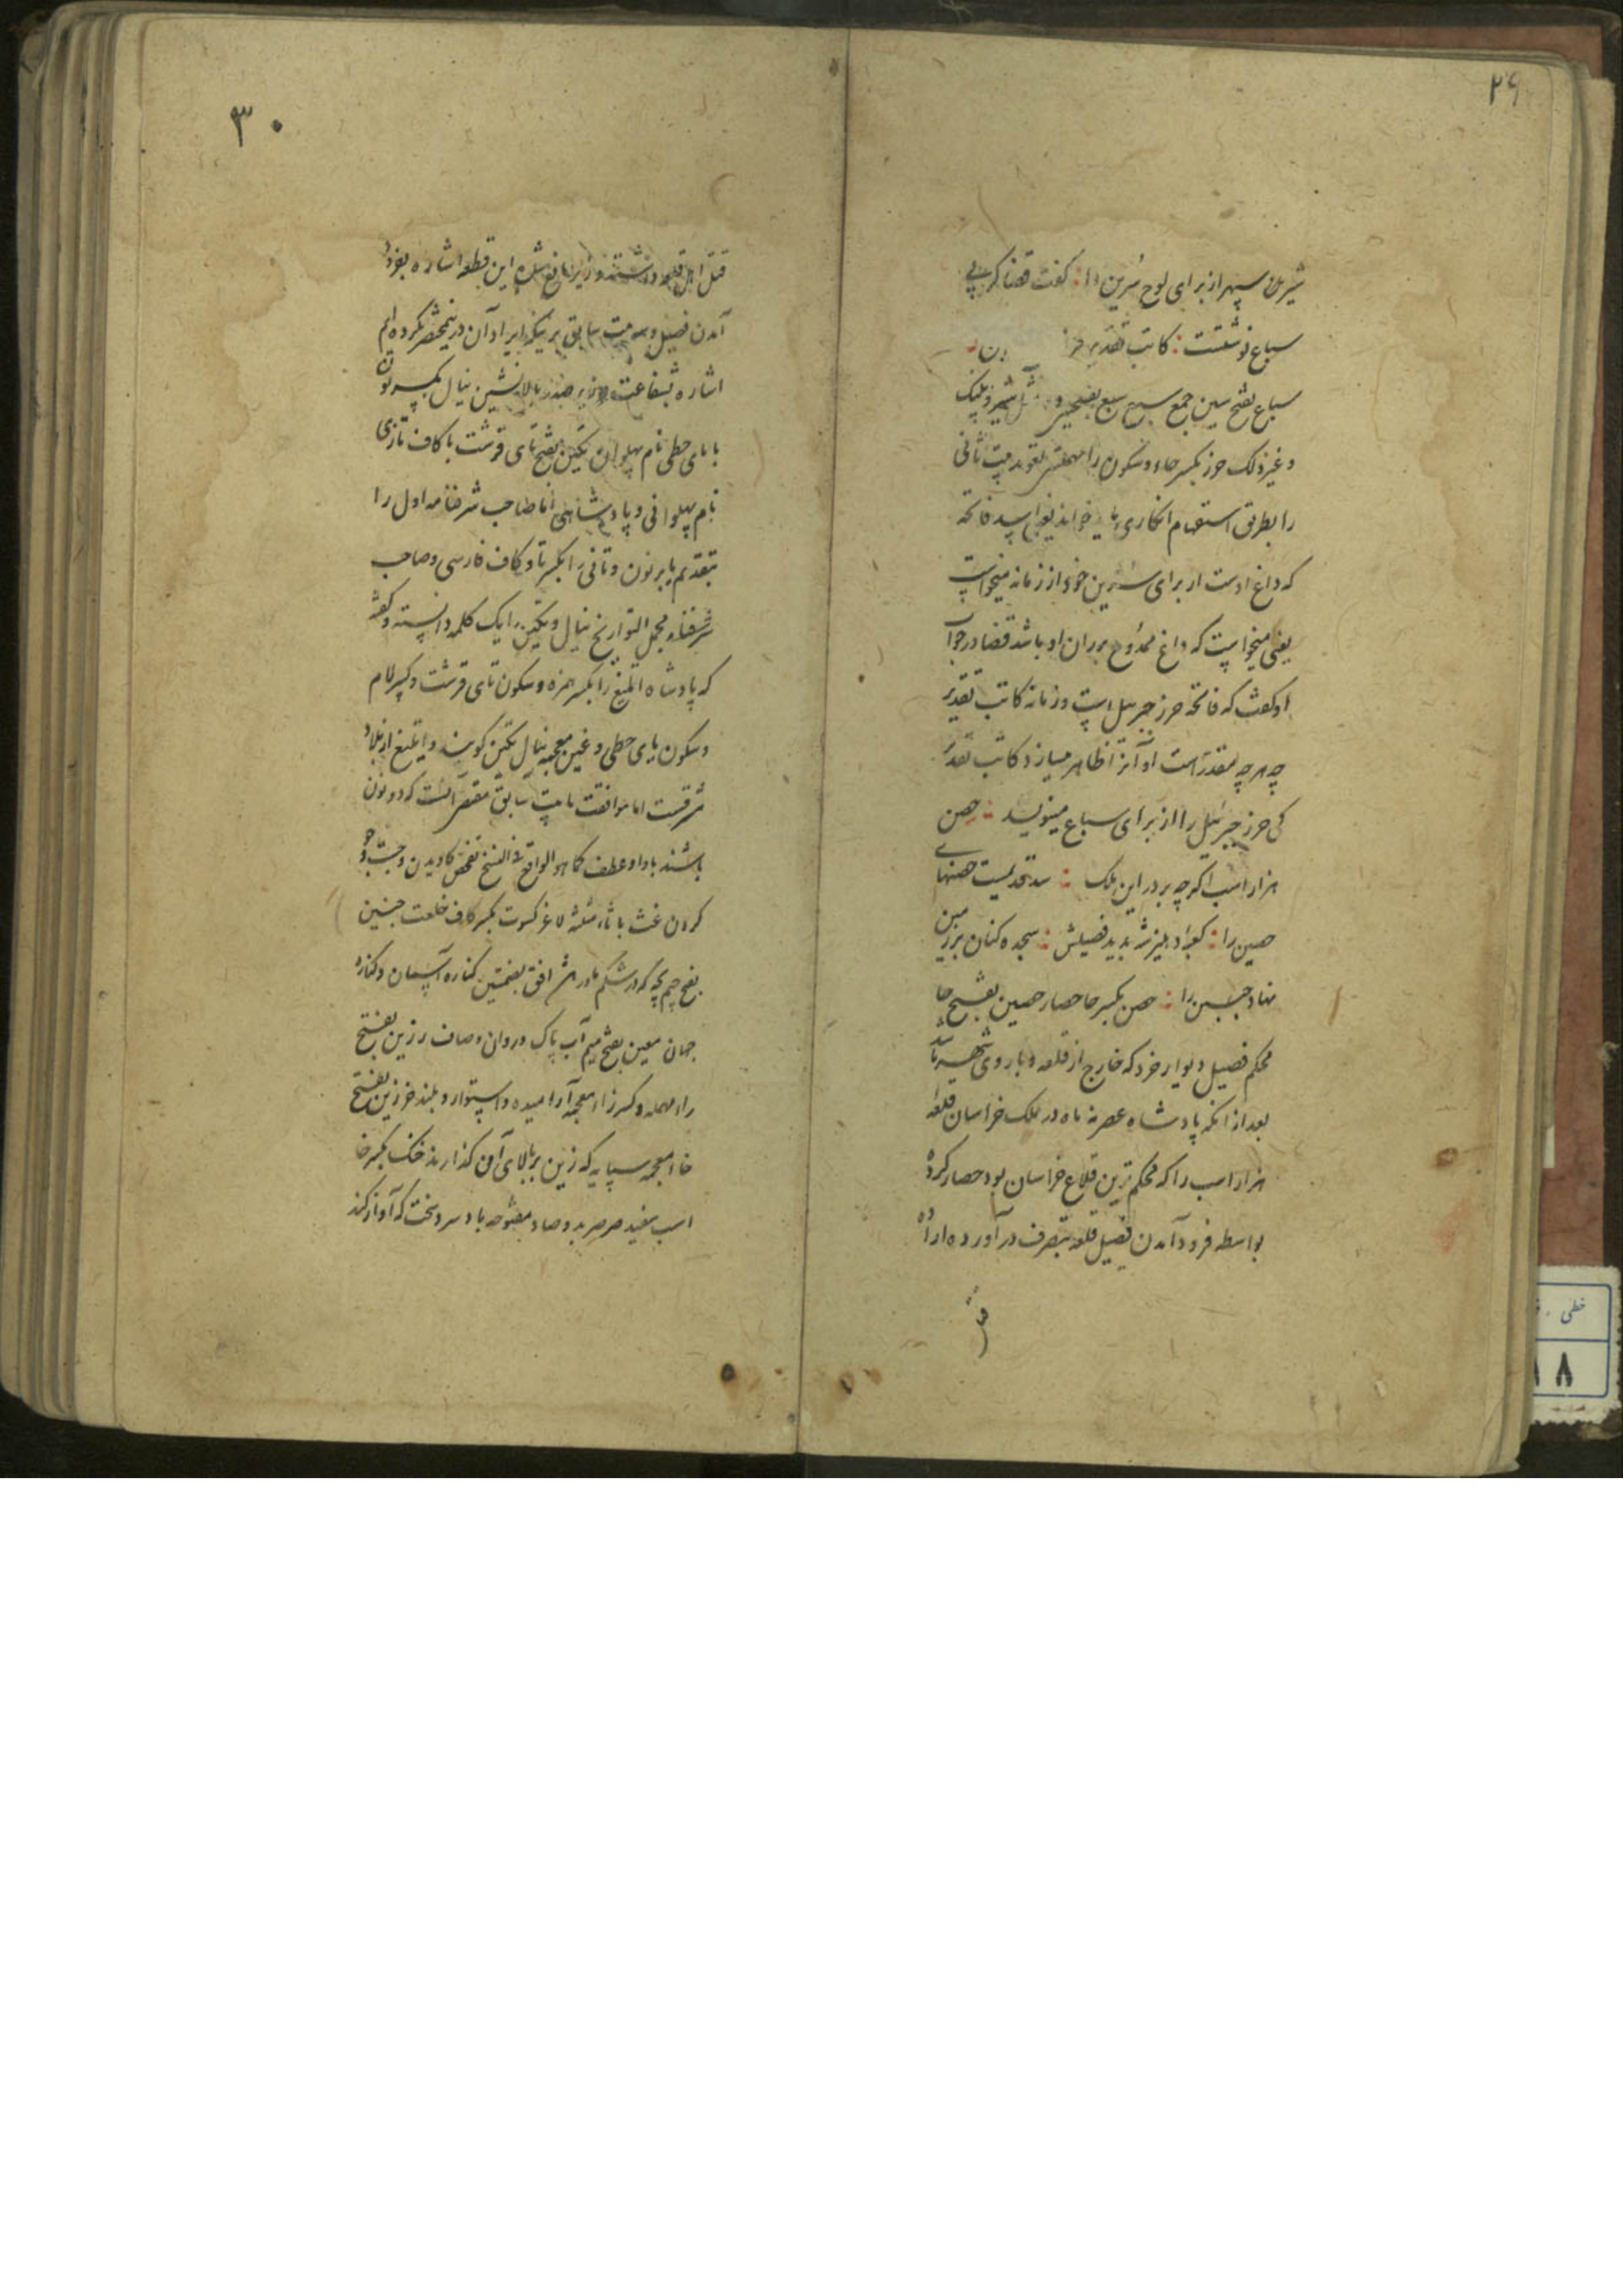 ۲۹
شیر سپهر از برای لوح سُرین را : گفت قضا کز پی
سباع نوشتست : کاتب تقدیر حرز
سباع بفتح سین جمع سبع بفتحین و شیر و پلنگ
و غیر ذلک حرز بکسر حاء و سکون را مهملتین تعوید بیت ثانی
را بطریق استفهام انکاری باید خواند یعنی اسپید فاتحه
که داغ اوست از برای سرین خود از زمانه میخواست
یعنی میخواست که داغ ممدوح بر ران او باشد قضا در جواب
او گفت که فاتحه حرز جبرئیل است و زمانه کاتب تقدیر
چه هرچه مقدر است او آنرا ظاهر میسازد کاتب تقدیر
کی حرز جبرئیل را از برای سباع مینویسد : حصن
هزار اسب اگرچه بر در این ملک : سد قدیمست حصنهای
حصین را : کعبه دهلیز شد بدید فصیلش : سجده کنان بر زمین
نهاد جبین را : حصن بکسر حا حصار حصین بفتح حا
محکم فصیل دیوار خرد که خارج از قلعه و باروی شهر باشد
بعد از آنکه پادشاه عصر نه ماه در ملک خراسان قلعه
هزار اسب را که محکم ترین قلاع خراسان بود حصار کرده
بواسطه فرود آمدن فصیل قلعه بتصرف در آورده اراده
قتل
۳۰
قتل اهل قلعه داشتند وزیر مانع شده این قطعه اشاره بفرود
آمدن فصیل و بیت سابق بر یکدیگر ایراد آن درین مختصر نکرده ایم
اشاره بشفاعت وزیر صدر بالا نشین نیال بکسر نون
با یای حطی نام پهلوان تکین بفتح تای قرشت با کاف تازی
نام پهلوانی و پادشاهی اما صاحب شرفنامه اول را
بتقدیم یا بر نون و ثانی را بکسر تا و کاف فارسی و صاحب
شرفنامه و مجمل التواریخ نیال و تکین را یک کلمه دانسته و گفته
که پادشاه اتلیغ را بکسر همزه و سکون تای قرشت و کسر لام
و سکون یای حطی و غین معجمه نیال تکین گویند و اتلیغ از بلاد
شرقست اما موافقت با بیت سابق مقتضی آنست که دو نون
باشند با واو عطف کما هو الواقع فی النسخ تفحص کاویدن و جست و جو
کردن غث با ثاء مثلثه لاغر کسوت بکسر کاف خلعت جنین
بفتح جیم بچه که در شکم مادر باشد افق بضمتین کناره آسمان و کناره
جهان معین بفتح میم آب پاک و روان و صاف رزین بفتح
راء مهمله و کسر زاء معجمه آرامیده و استوار و بلند خرزین بفتح
خاء معجمه سپایه که زین بر بالای آن گذارند خنگ بکسر خا
اسب سفید صرصر بدو صاد مفتوحه باد سرد سخت که آواز کند
خطی
۸